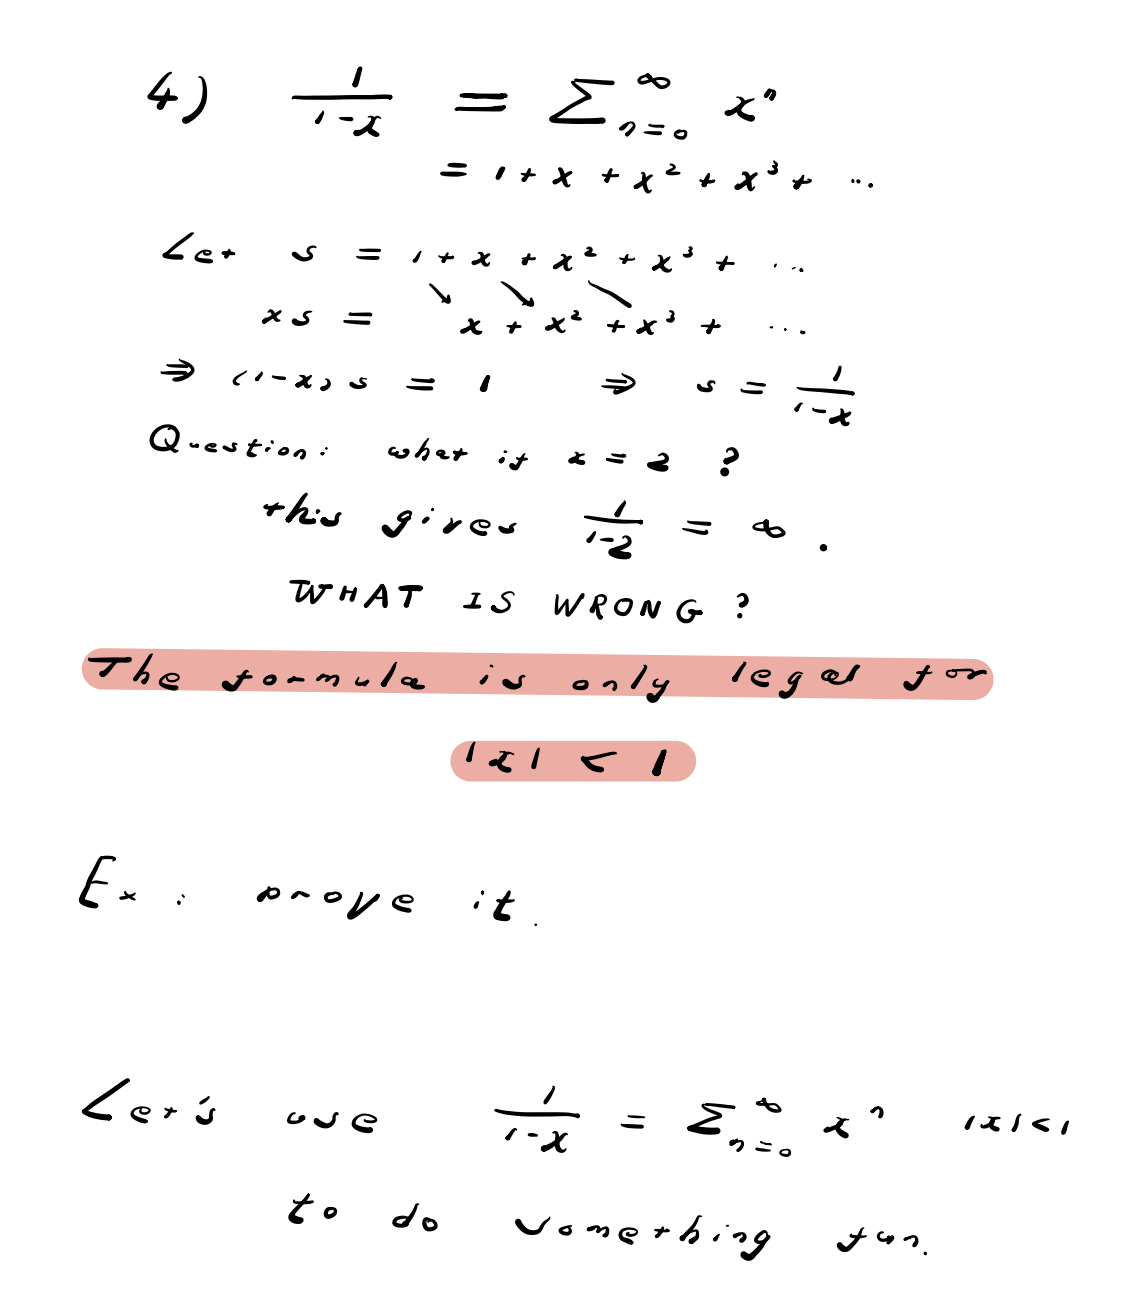 4) 1/(1-x) = Σ_{n=0}^{∞} x^n
= 1 + x + x² + x³ + ...
Let s = 1 + x + x² + x³ + ...
xs = x + x² + x³ + ...
⇒ (1-x)s = 1 ⇒ s = 1/(1-x)
Question: what if x = 2 ?
this gives 1/(1-2) = ∞ .
WHAT IS WRONG ?
The formula is only legal for
|x| < 1
Ex : prove it.
Let's use 1/(1-x) = Σ_{n=0}^{∞} x^n |x|<1
to do something fun.